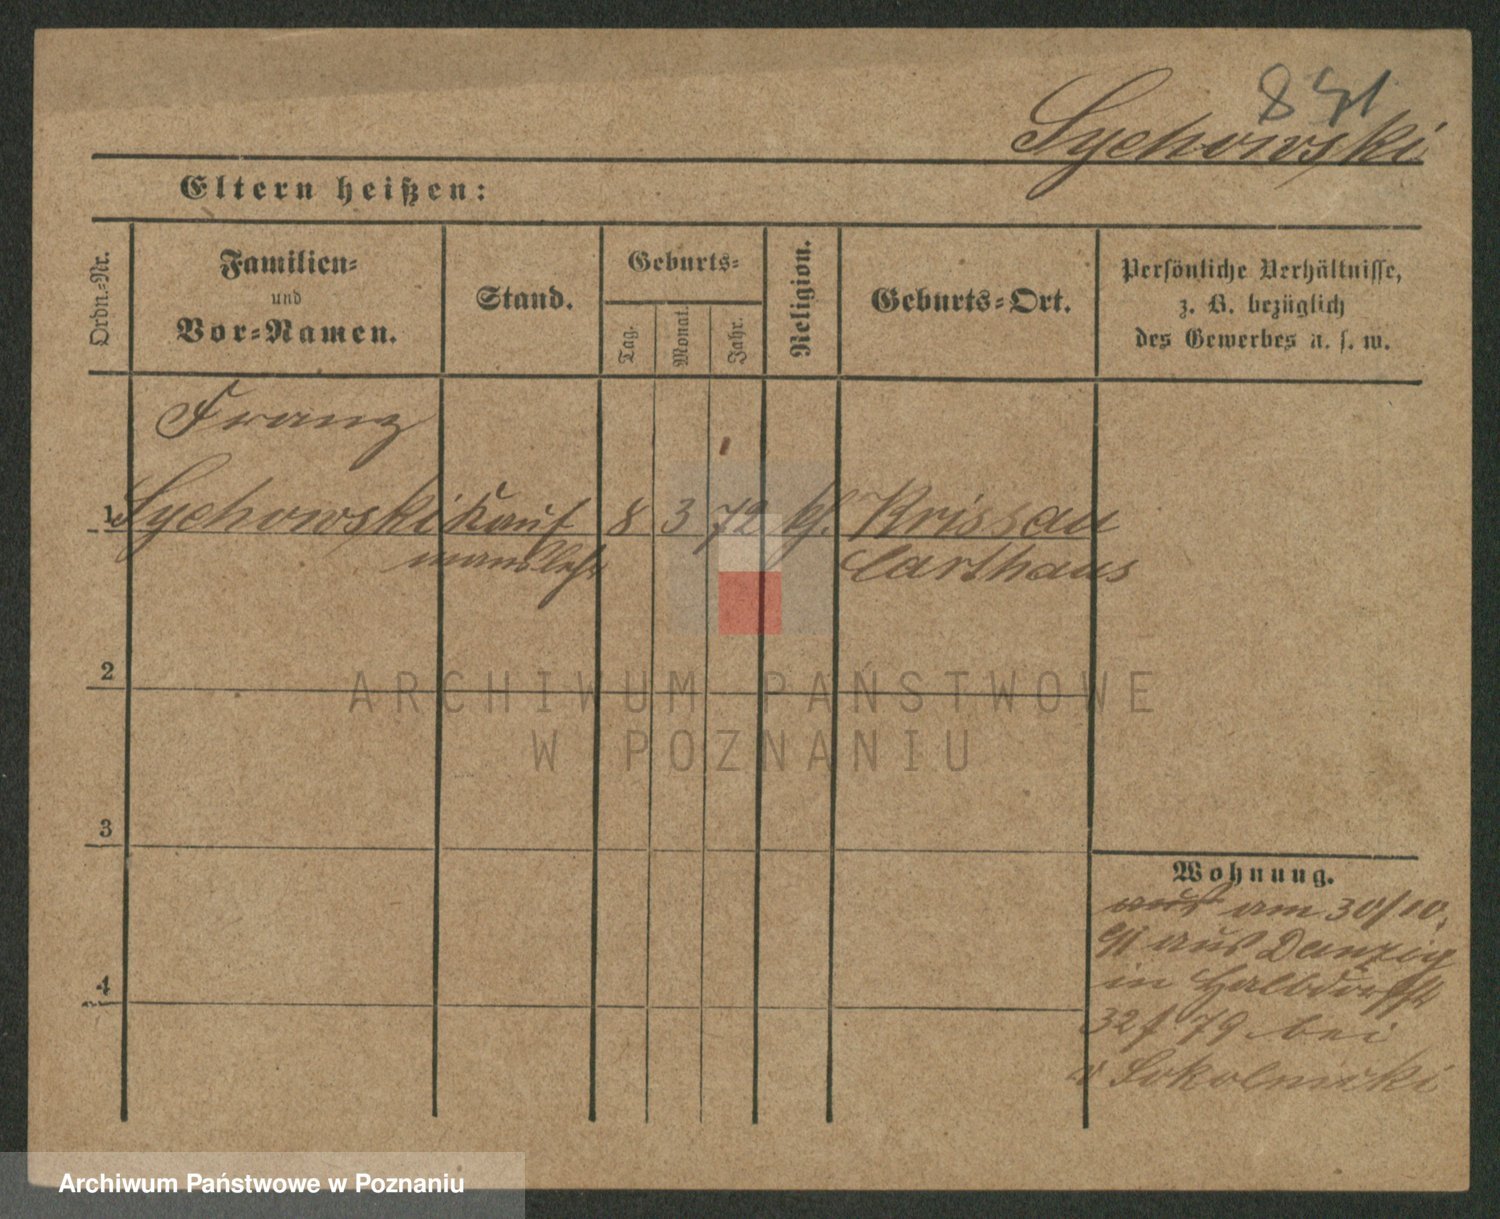 851
Sychowski
Eltern heißen:
Ordn.-Nr.
Familien-
und
Vor-Namen.
Stand.
Geburts-
Tag.
Monat.
Jahr.
Religion.
Geburts-Ort.
Persönliche Verhältnisse,
z. B. bezüglich
des Gewerbes u. s. w.
Franz
1 Sychowski Kauf 8 3 72 kf. Krissau
mannslehr Carthaus
2
3
4
Wohnung.
aus am 30/10.
91 aus Danzig
in Halbdorfstr
32 f 79 bei
v Sokolnicki
ARCHIWUM PAŃSTWOWE
W POZNANIU
Archiwum Państwowe w Poznaniu